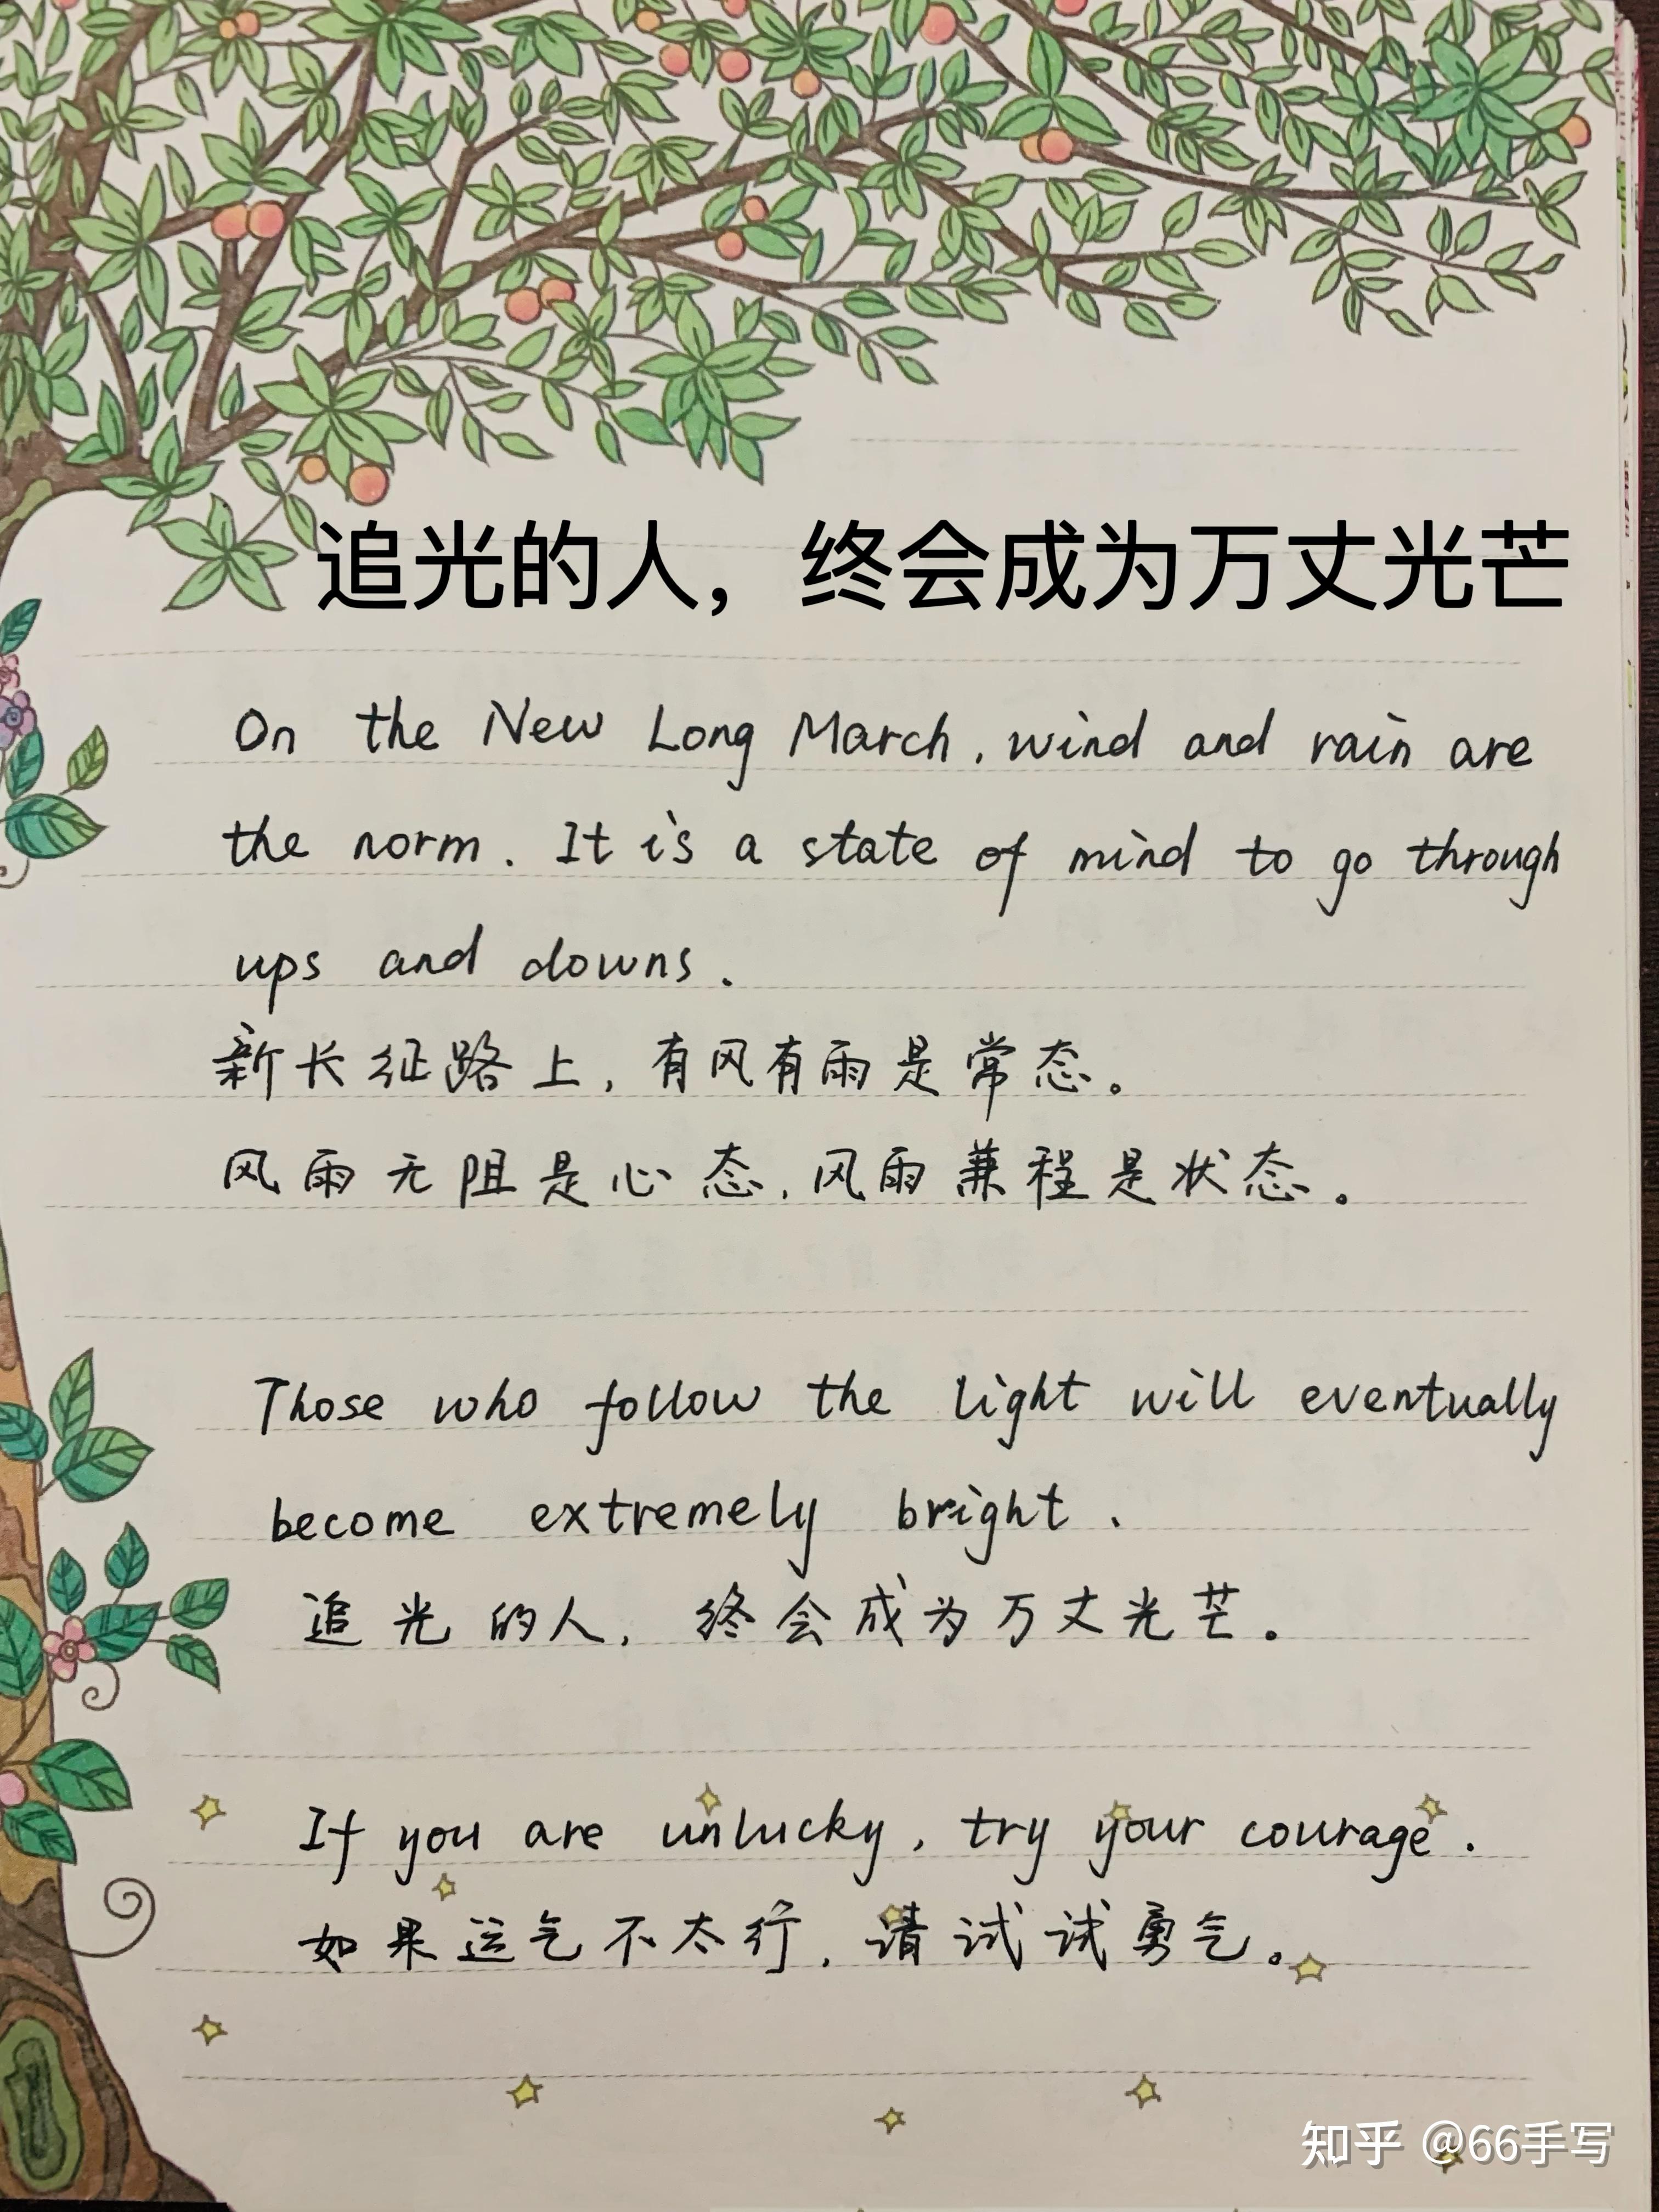 追光的人，终会成为万丈光芒
On the New Long March, wind and rain are
the norm. It is a state of mind to go through
ups and downs.
新长征路上，有风有雨是常态。
风雨无阻是心态，风雨兼程是状态。
Those who follow the light will eventually
become extremely bright.
追光的人，终会成为万丈光芒。
If you are unlucky, try your courage.
如果运气不太行，请试试勇气。
知乎 @66手写